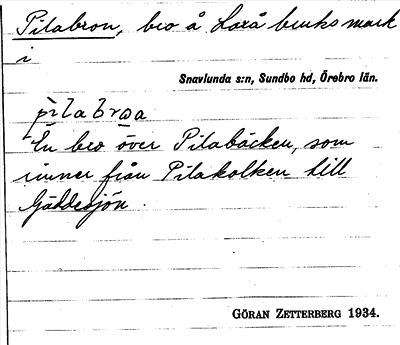 Pilabron, bro å Laxå bruks mark
i
Snavlunda s:n, Sundbo hd, Örebro län.
pìlabròa
En bro över Pilabäcken, som
rinner från Pilakolken till
Gäddesjön.
GÖRAN ZETTERBERG 1934.